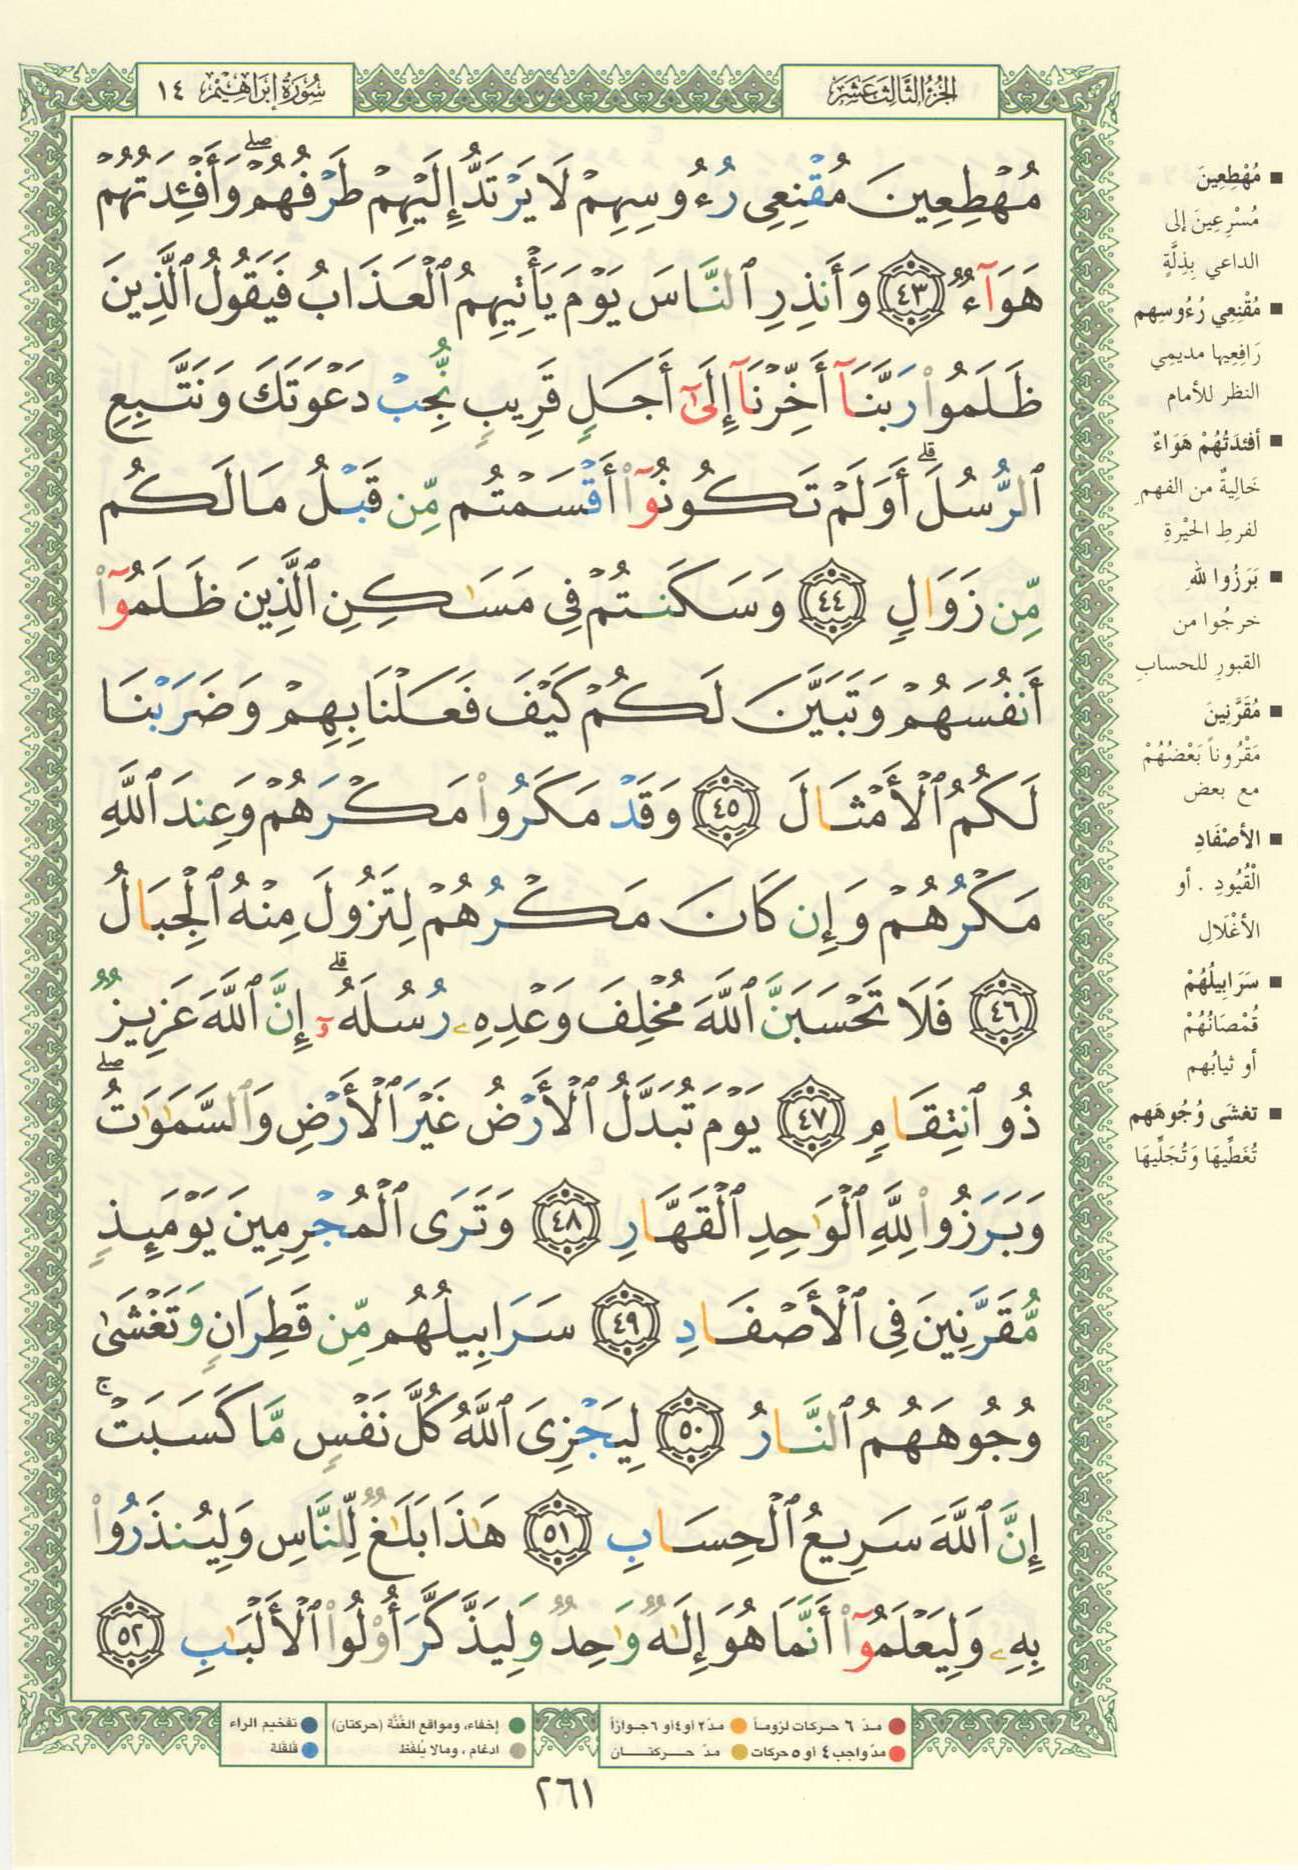 الجزء الثالث عشر
سورة إبراهيم ١٤
مُهْطِعِينَ مُقْنِعِى رُءُوسِهِمْ لَا يَرْتَدُّ إِلَيْهِمْ طَرْفُهُمْ ۖ وَأَفْـِٔدَتُهُمْ
هَوَآءٌ ﴿٤٣﴾ وَأَنذِرِ ٱلنَّاسَ يَوْمَ يَأْتِيهِمُ ٱلْعَذَابُ فَيَقُولُ ٱلَّذِينَ
ظَلَمُوا۟ رَبَّنَآ أَخِّرْنَآ إِلَىٰٓ أَجَلٍ قَرِيبٍ نُّجِبْ دَعْوَتَكَ وَنَتَّبِعِ
ٱلرُّسُلَ ۗ أَوَلَمْ تَكُونُوٓا۟ أَقْسَمْتُم مِّن قَبْلُ مَا لَكُم
مِّن زَوَالٍ ﴿٤٤﴾ وَسَكَنتُمْ فِى مَسَـٰكِنِ ٱلَّذِينَ ظَلَمُوٓا۟
أَنفُسَهُمْ وَتَبَيَّنَ لَكُمْ كَيْفَ فَعَلْنَا بِهِمْ وَضَرَبْنَا
لَكُمُ ٱلْأَمْثَالَ ﴿٤٥﴾ وَقَدْ مَكَرُوا۟ مَكْرَهُمْ وَعِندَ ٱللَّهِ
مَكْرُهُمْ وَإِن كَانَ مَكْرُهُمْ لِتَزُولَ مِنْهُ ٱلْجِبَالُ
﴿٤٦﴾ فَلَا تَحْسَبَنَّ ٱللَّهَ مُخْلِفَ وَعْدِهِۦ رُسُلَهُۥٓ ۗ إِنَّ ٱللَّهَ عَزِيزٌ
ذُو ٱنتِقَامٍ ﴿٤٧﴾ يَوْمَ تُبَدَّلُ ٱلْأَرْضُ غَيْرَ ٱلْأَرْضِ وَٱلسَّمَـٰوَٰتُ ۖ
وَبَرَزُوا۟ لِلَّهِ ٱلْوَٰحِدِ ٱلْقَهَّارِ ﴿٤٨﴾ وَتَرَى ٱلْمُجْرِمِينَ يَوْمَئِذٍ
مُّقَرَّنِينَ فِى ٱلْأَصْفَادِ ﴿٤٩﴾ سَرَابِيلُهُم مِّن قَطِرَانٍ وَتَغْشَىٰ
وُجُوهَهُمُ ٱلنَّارُ ﴿٥٠﴾ لِيَجْزِىَ ٱللَّهُ كُلَّ نَفْسٍ مَّا كَسَبَتْ ۚ
إِنَّ ٱللَّهَ سَرِيعُ ٱلْحِسَابِ ﴿٥١﴾ هَـٰذَا بَلَـٰغٌ لِّلنَّاسِ وَلِيُنذَرُوا۟
بِهِۦ وَلِيَعْلَمُوٓا۟ أَنَّمَا هُوَ إِلَـٰهٌ وَٰحِدٌ وَلِيَذَّكَّرَ أُو۟لُوا۟ ٱلْأَلْبَـٰبِ ﴿٥٢﴾
■ مُهْطِعِينَ
مُسْرِعِينَ إلى
الداعي بِذِلَّةٍ
■ مُقْنِعِي رُءُوسِهِم
رَافِعِيها مديمِي
النظر للأمام
■ أفئدَتُهُمْ هَوَاءٌ
خَالِيةٌ من الفهمِ
لفرطِ الحَيْرةِ
■ بَرَزُوا للهِ
خرجُوا من
القبورِ للحسابِ
■ مُقَرَّنِينَ
مَقْرُوناً بَعْضُهُمْ
مع بعض
■ الأصْفَادِ
الْقُيُودِ . أو
الأغْلَالِ
■ سَرَابِيلُهُمْ
قُمْصَانُهُمْ
أو ثيابُهم
■ تغشَى وُجُوهَهم
تُغَطِّيهَا وَتُجَلِّيهَا
مدّ ٦ حركات لزوماً
مدّ ٢ أو ٤ أو ٦ جوازاً
مدّ واجب ٤ أو ٥ حركات
مدّ حركتان
إخفاء، ومواقع الغُنَّة (حركتان)
ادغام ، ومالا يُلفَظ
تفخيم الراء
قلقلة
٢٦١